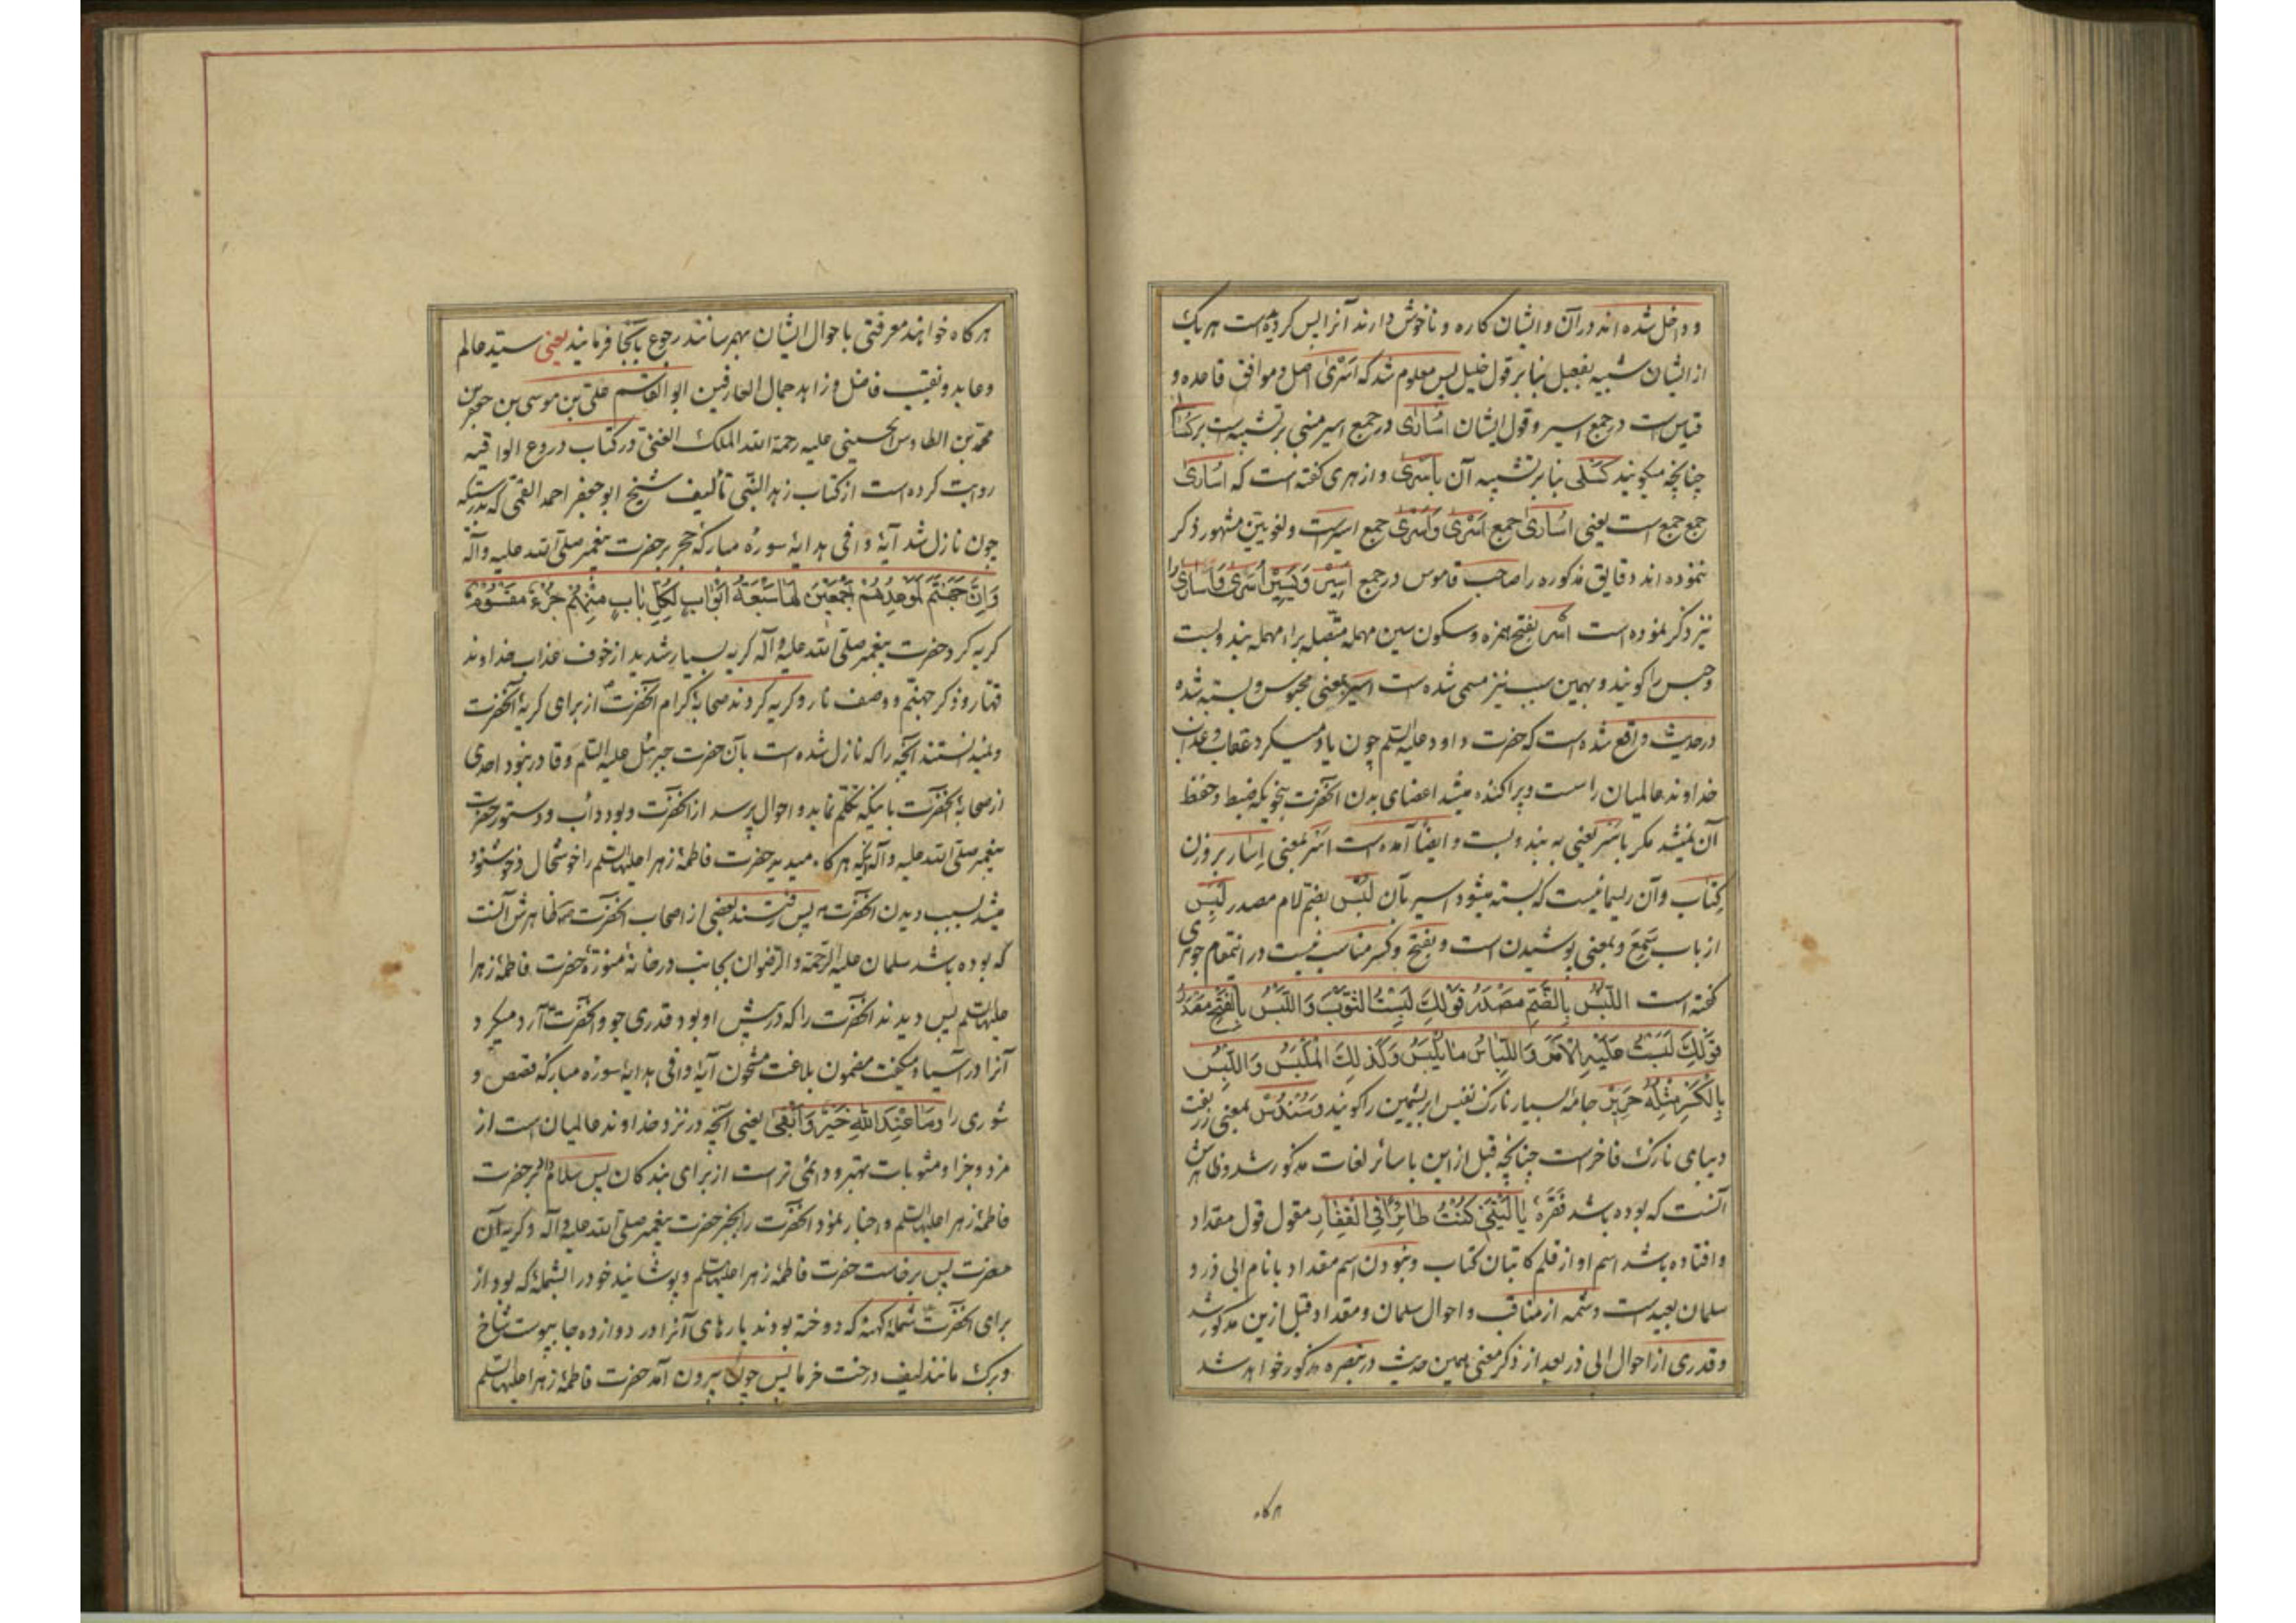 و داخل شده اند در آن و ایشان کاره و ناخوش دارند آنرا پس کرده است هر یک
از ایشان شبیه بفعیل بنا بر قول خلیل پس معلوم شد که اَسْرَیٰ اصل و موافق قاعده و
قیاس است در جمع اسیر و قول ایشان اُسَارَیٰ در جمع اسیر مبنی بر تشبیه است بر کُسَا
چنانچه میگویند کَسْلَی بنا بر تشبیه آن بِأَسْرَیٰ و ازهری گفته است که اُسَارَیٰ
جمع جمع است یعنی اُسَارَیٰ جمع اَسْرَیٰ وَأَسْرَیٰ جمع اسیر است و لغویین مشهور ذکر
ننموده اند دقایق مذکوره را صاحب قاموس در جمع اَسِیْر
نیز ذکر نموده است اَسْر بفتح همزه و سکون سین مهمله متصله براء مهمله بند و بست
و حبس را گویند و بهمین سبب نیز مسمی شده است اسیر بمعنی محبوس و بسته شده
در حدیث واقع شده است که حضرت داود علیه السلم چون یاد میکرد عقاب و عذاب
خداوند عالمیان را سست و پراکنده میشد اعضای بدن آنحضرت بنحویکه ضبط و حفظ
آن نمیشد مکر باَسْر یعنی به بند و بست و ایضاً آمده است اَسْر بمعنی اِسَار بر وزن
کِتَاب و آن ریسمانیست که بسته میشود اسیر بآن لُبْس بضم لام مصدر لَبِسَ
از باب سَمِعَ و بمعنی پوشیدن است و بفتح و کسر مناسب نیست در اینمقام جوهری
گفته است اللُّبْسُ بِالضَّمِّ مَصْدَرُ قَوْلِكَ لَبِسْتُ الثَّوْبَ وَاللَّبْسُ بِالْفَتْحِ مَصْدَرُ
قَوْلِكَ لَبَسْتُ عَلَيْهِ الْأَمْرَ وَاللِّبَاسُ مَا يُلْبَسُ وَكَذٰلِكَ الْمَلْبَسُ وَاللِّبْسُ
بِالْكَسْرِ مِثْلُهُ حَرِیْر جامهٔ بسیار نازک نفیس ابریشمین را گویند و سُنْدُسْ بمعنی زربفت
دیبای نازک فاخر است چنانچه قبل از این با سائر لغات مذکور شد و ظاهرش
آنست که بوده باشد فقرهٔ یَا لَیْتَنِی كُنْتُ طَائِرًا فِی الْقِفَارِ مقول قول مقداد
و افتاده باشد اسم او از قلم کاتبان کتاب و نبودن اسم مقداد با نام ابی ذر و
سلمان بعید است و شمه از مناقب و احوال سلمان و مقداد قبل ازین مذکور شد
و قدری از احوال ابی ذر بعد از ذکر معنی همین حدیث در تبصره مذکور خواهد شد
هرکاه
هرکاه خواهند معرفتی باحوال ایشان بهمرسانند رجوع بآنجا فرمایند یعنی سید عالم
و عابد و نقیب فاضل و زاهد جمال العارفین ابو القاسم علی بن موسی بن جعفر بن
محمد بن الطاوس الحسینی علیه رحمة الله الملک الغنی در کتاب دروع الواقیه
روایت کرده است از کتاب زهد النبی تألیف شیخ ابو جعفر احمد القمی که بدرستیکه
چون نازل شد آیهٔ وافی هدایهٔ سورهٔ مبارکهٔ حجر بر حضرت پیغمبر صلی الله علیه و آله
وَإِنَّ جَهَنَّمَ لَمَوْعِدُهُمْ أَجْمَعِیْنَ لَهَا سَبْعَةُ أَبْوَابٍ لِكُلِّ بَابٍ مِنْهُمْ جُزْءٌ مَقْسُوْمٌ
کریه کرد حضرت پیغمبر صلی الله علیه و آله کریه بسیار شدید از خوف عذاب خداوند
قهار و ذکر جهنم و وصف نار و کریه کردند صحابهٔ کرام آنحضرت از برای کریهٔ آنحضرت
و نمیدانستند آنچه را که نازل شده است بآن حضرت جبرئیل علیه السلم و قادر نبود احدی
از صحابهٔ آنحضرت باینکه تکلم نماید و احوال پرسد از آنحضرت و بود داب و دستور حضرت
پیغمبر صلی الله علیه و آله اینکه هرکاه میدید حضرت فاطمهٔ زهرا علیها السلم را خوشحال و خوشنود
میشد بسبب دیدن آنحضرت پس رفتند بعضی از اصحاب آنحضرت که ظاهرش آنست
که بوده باشد سلمان علیه الرحمة و الرضوان بجانب در خانهٔ منورهٔ حضرت فاطمهٔ زهرا
علیها السلم پس دیدند آنحضرت را که در پیش او بود قدری جو و آنحضرت آرد میکرد
آنرا در آسیا و میکفت مضمون بلاغت مشحون آیهٔ وافی هدایهٔ سورهٔ مبارکهٔ قصص و
شوری را وَمَا عِنْدَ اللّٰهِ خَیْرٌ وَأَبْقَیٰ یعنی آنچه در نزد خداوند عالمیان است از
مزد و جزا و مثوبات بهتر و دائمی تر است از برای بندکان پس سلام داد بر حضرت
فاطمهٔ زهرا علیها السلم و اخبار نمود آنحضرت را بخبر حضرت پیغمبر صلی الله علیه و آله و کریه آن
حضرت پس برخاست حضرت فاطمهٔ زهرا علیها السلم و پوشانید خود را بشملهٔ که بود از
برای آنحضرت شملهٔ کهنهٔ که دوخته بودند پارهای آنرا در دوازده جا بپوست شاخ
و برک مانند لیف درخت خرما پس چون بیرون آمد حضرت فاطمهٔ زهرا علیها السلم